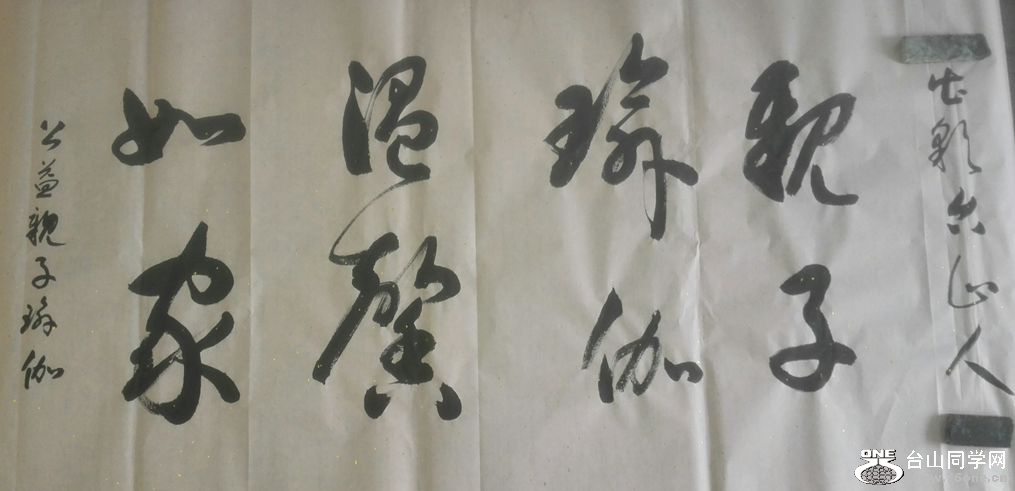 出彩台山人
親子
瑜伽
温馨
如家
公益親子瑜伽
ONE 台山同学网